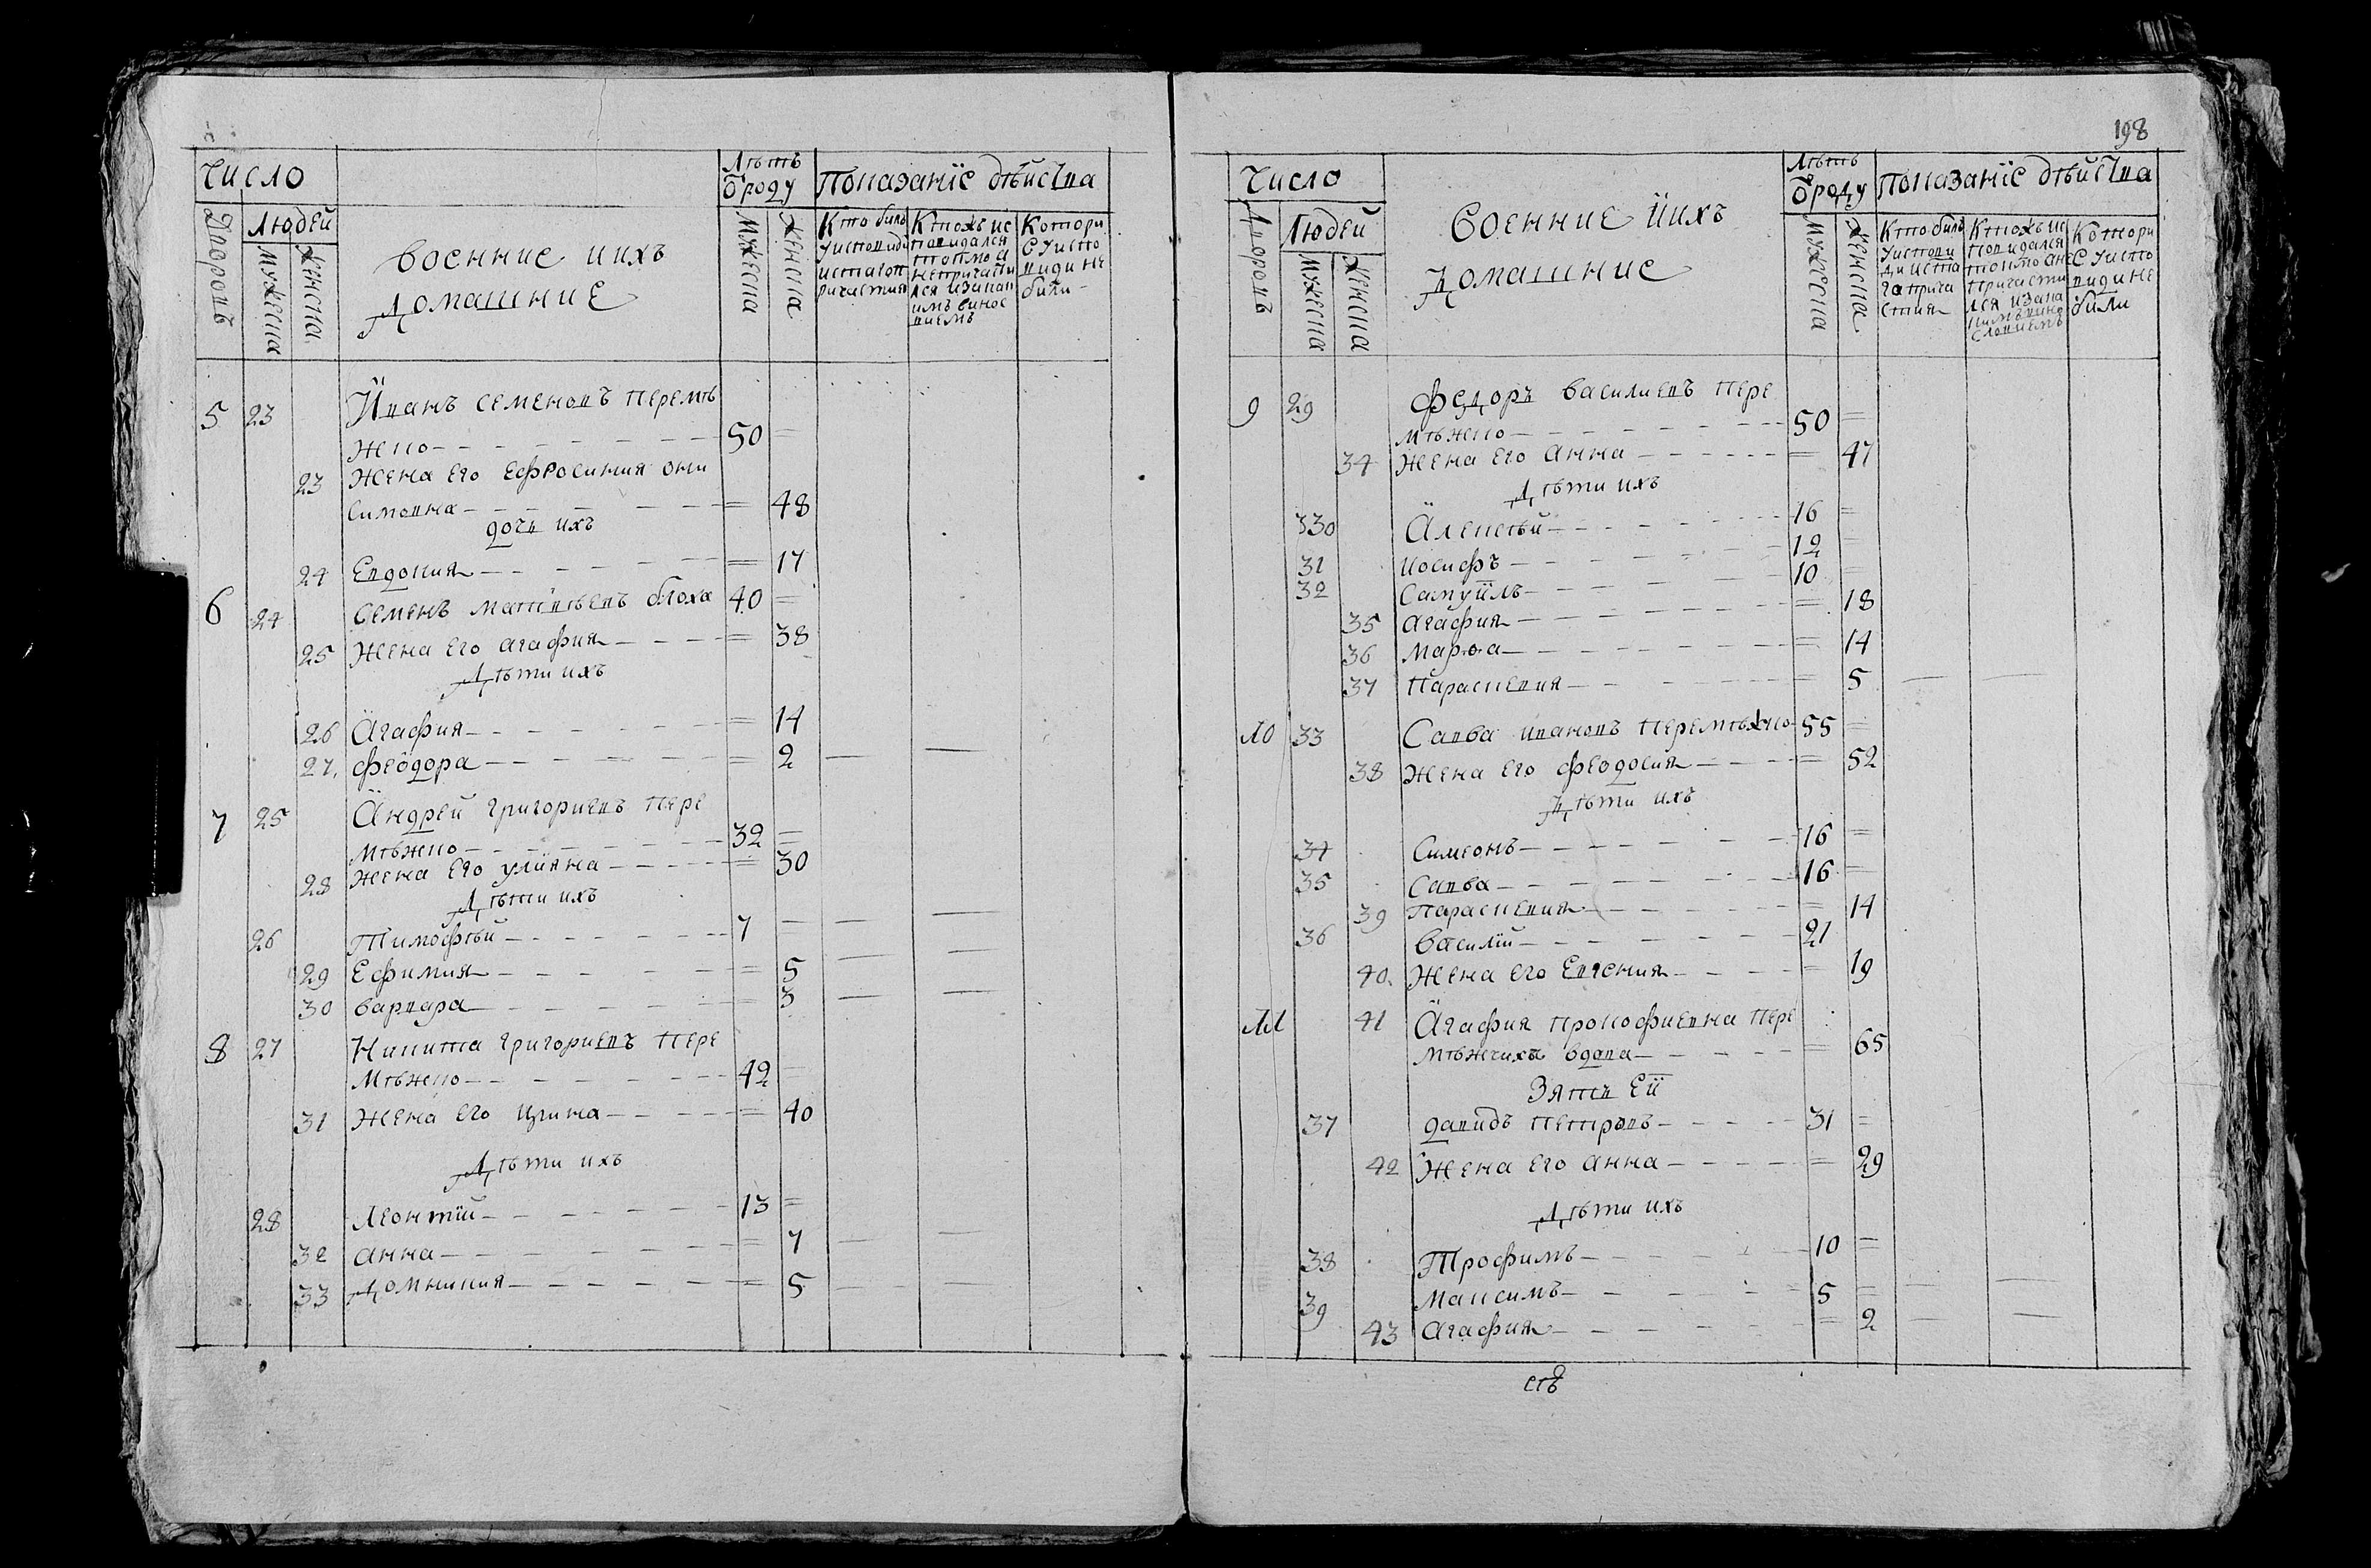 Число
Лѣтъ
Показаніе дѣйства
Ѿроду
Дворовъ
Людей
Мужеска
Женска
военние иихъ
Домашние
Мужеска
Женска
Кто билъ
Уисповиди
иСтагоп
ричастия
Ктожъ ис
повидался
токмо а
непричасти
лся изикак
имъ винос
виемъ
Котори
Суисто
види не
били
5 23 Иванъ Семеновъ Перемѣ
жено 50 =
23 Жена его Ефросиния они
симовна = 48
дочь ихъ
24 Евдокия = 17
6 24 Семенъ Матвѣевъ блоха 40 =
25 Жена его агафия = 38
Дѣти ихъ
26 Агафия = 14
27. феодора = 2
7 25 Андрей григориевъ Пере
мѣжено 32 =
28 Жена его улияна = 30
Дѣти ихъ
26 Тимофѣй 7
29 Ефимия = 5
30 варвара = 3
8 27 Никита григориевъ Пере
мѣжено 42 =
31 Жена его Ирина = 40
Дѣти ихъ
28 Леонтій 13 =
32 анна = 7
33 Домникия = 5
198
Число
Лѣтъ
Показаніе дѣйства
Ѿроду
Дворовъ
Людей
Мужеска
Женска
военние иихъ
Домашние
Мужеска
Женска
Кто билъ
Уиспови
ди иста
гаприча
стия
Ктожъ ис
повидался
токмо ане
причасти
лся изака
кимъ вино
словиемъ
Котори
Суисто
види не
били
9 29 Федоръ василиевъ Пере
мѣжено 50 =
34 Жена его анна = 47
Дѣти ихъ
330 Алексѣй 16 =
31 иосифъ 12 =
32 Самуилъ 10 =
35 агафия = 18
36 марѳа = 14
37 Параскевия = 5
10 33 Савва ивановъ Перемѣжно 55 =
38 Жена его феодосия = 52
Дѣти ихъ
34 Симеонъ 16 =
35 Савва 16 =
39 Параскевия = 14
36 василій 21
40. Жена его Евгения = 19
11 41 Агафия прокофиевна Пере
мѣжчиха вдова = 65
Зять Ей
37 давидъ петровъ 31 =
42 Жена его анна = 29
Дѣти ихъ
38 Трофимъ 10 =
39 Максимъ 5 =
43 агафия = 2